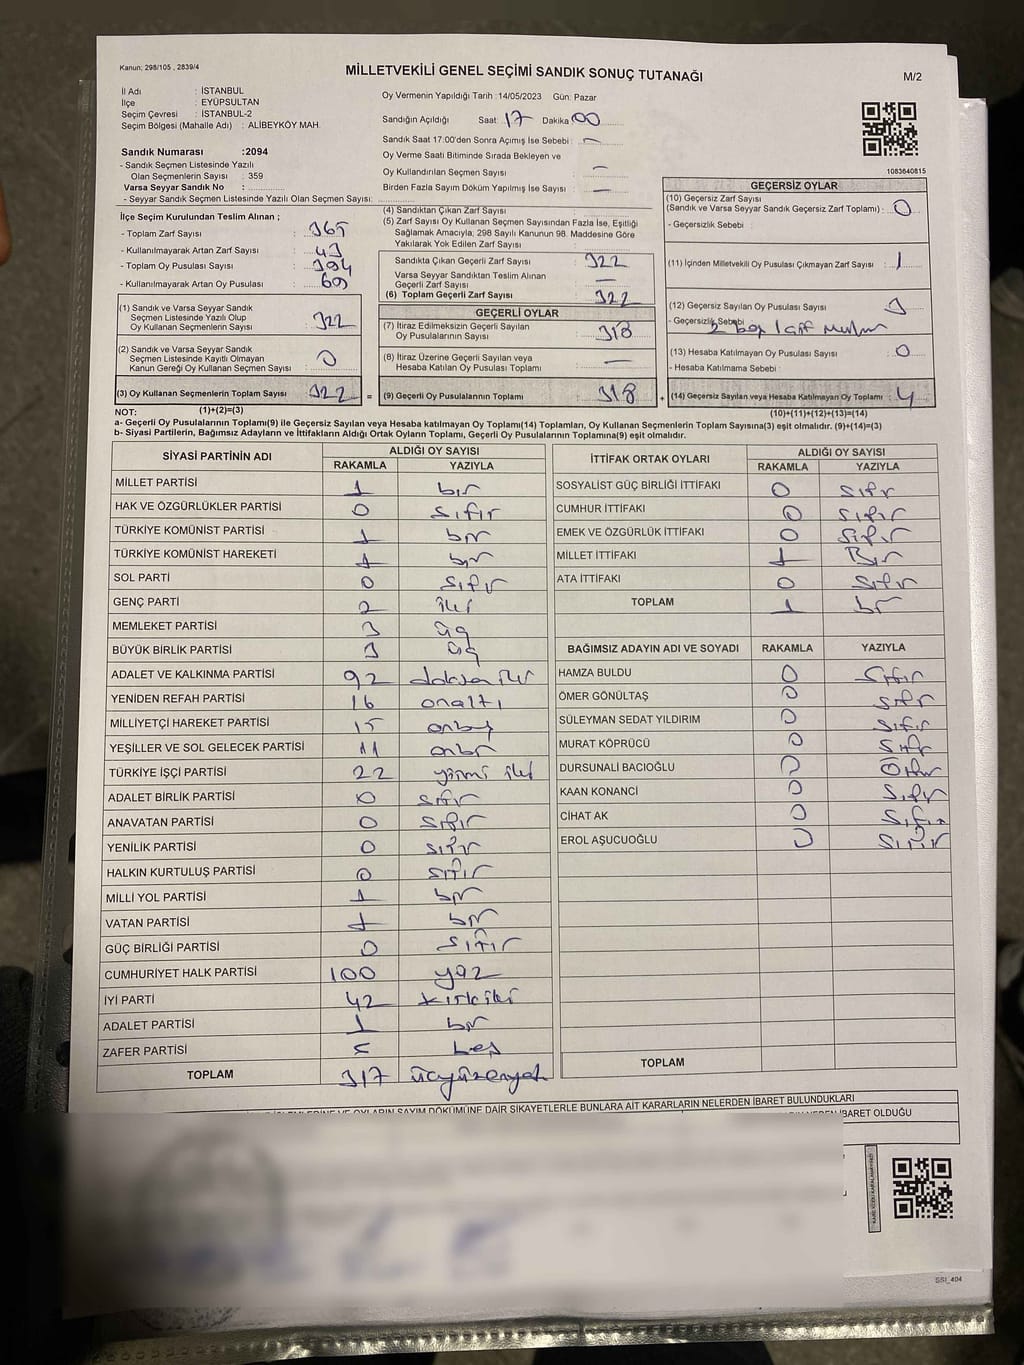 Kanun: 298/105 , 2839/4
MİLLETVEKİLİ GENEL SEÇİMİ SANDIK SONUÇ TUTANAĞI
M/2
İl Adı : İSTANBUL
İlçe : EYÜPSULTAN
Seçim Çevresi : İSTANBUL-2
Seçim Bölgesi (Mahalle Adı) : ALİBEYKÖY MAH.
Oy Vermenin Yapıldığı Tarih :14/05/2023 Gün: Pazar
Sandığın Açıldığı Saat: 17 Dakika 00
Sandık Saat 17:00'den Sonra Açımış İse Sebebi : —
Oy Verme Saati Bitiminde Sırada Bekleyen ve
Oy Kullandırılan Seçmen Sayısı : —
Birden Fazla Sayım Döküm Yapılmış İse Sayısı : —
1083640815
Sandık Numarası :2094
- Sandık Seçmen Listesinde Yazılı
Olan Seçmenlerin Sayısı : 359
Varsa Seyyar Sandık No :
- Seyyar Sandık Seçmen Listesinde Yazılı Olan Seçmen Sayısı:
İlçe Seçim Kurulundan Teslim Alınan ;
- Toplam Zarf Sayısı : 365
- Kullanılmayarak Artan Zarf Sayısı : 43
- Toplam Oy Pusulası Sayısı :
- Kullanılmayarak Artan Oy Pusulası :
(1) Sandık ve Varsa Seyyar Sandık
Seçmen Listesinde Yazılı Olup
Oy Kullanan Seçmenlerin Sayısı : 322
(2) Sandık ve Varsa Seyyar Sandık
Seçmen Listesinde Kayıtlı Olmayan
Kanun Gereği Oy Kullanan Seçmen Sayısı : 0
(3) Oy Kullanan Seçmenlerin Toplam Sayısı : 322
(1)+(2)=(3)
(4) Sandıktan Çıkan Zarf Sayısı :
(5) Zarf Sayısı Oy Kullanan Seçmen Sayısından Fazla İse, Eşitliği
Sağlamak Amacıyla, 298 Sayılı Kanunun 98. Maddesine Göre
Yakılarak Yok Edilen Zarf Sayısı :
Sandıkta Çıkan Geçerli Zarf Sayısı : 322
Varsa Seyyar Sandıktan Teslim Alınan
Geçerli Zarf Sayısı : —
(6) Toplam Geçerli Zarf Sayısı : 322
GEÇERLİ OYLAR
(7) İtiraz Edilmeksizin Geçerli Sayılan
Oy Pusulalarının Sayısı : 318
(8) İtiraz Üzerine Geçerli Sayılan veya
Hesaba Katılan Oy Pusulası Toplamı : —
= (9) Geçerli Oy Pusulalarının Toplamı : 318
GEÇERSİZ OYLAR
(10) Geçersiz Zarf Sayısı
(Sandık ve Varsa Seyyar Sandık Geçersiz Zarf Toplamı) : 0
- Geçersizlik Sebebi :
(11) İçinden Milletvekili Oy Pusulası Çıkmayan Zarf Sayısı : 1
(12) Geçersiz Sayılan Oy Pusulası Sayısı : 3
- Geçersizlik Sebebi : 2
(13) Hesaba Katılmayan Oy Pusulası Sayısı : 0
- Hesaba Katılmama Sebebi :
+ (14) Geçersiz Sayılan veya Hesaba Katılmayan Oy Toplamı : 4
(10)+(11)+(12)+(13)=(14)
NOT:
a- Geçerli Oy Pusulalarının Toplamı(9) ile Geçersiz Sayılan veya Hesaba katılmayan Oy Toplamı(14) Toplamları, Oy Kullanan Seçmenlerin Toplam Sayısına(3) eşit olmalıdır. (9)+(14)=(3)
b- Siyasi Partilerin, Bağımsız Adayların ve İttifakların Aldığı Ortak Oyların Toplamı, Geçerli Oy Pusulalarının Toplamına(9) eşit olmalıdır.
SİYASİ PARTİNİN ADI ALDIĞI OY SAYISI
RAKAMLA YAZIYLA
MİLLET PARTİSİ 1 bir
HAK VE ÖZGÜRLÜKLER PARTİSİ 0 sıfır
TÜRKİYE KOMÜNİST PARTİSİ 1 bir
TÜRKİYE KOMÜNİST HAREKETİ 1 bir
SOL PARTİ 0 sıfır
GENÇ PARTİ 2 iki
MEMLEKET PARTİSİ 3 üç
BÜYÜK BİRLİK PARTİSİ 3 üç
ADALET VE KALKINMA PARTİSİ 92 doksan iki
YENİDEN REFAH PARTİSİ 16 onaltı
MİLLİYETÇİ HAREKET PARTİSİ 15 onbeş
YEŞİLLER VE SOL GELECEK PARTİSİ 11 onbir
TÜRKİYE İŞÇİ PARTİSİ 22 yirmi iki
ADALET BİRLİK PARTİSİ 0 sıfır
ANAVATAN PARTİSİ 0 sıfır
YENİLİK PARTİSİ 0 sıfır
HALKIN KURTULUŞ PARTİSİ 0 sıfır
MİLLİ YOL PARTİSİ 1 bir
VATAN PARTİSİ 1 bir
GÜÇ BİRLİĞİ PARTİSİ 0 sıfır
CUMHURİYET HALK PARTİSİ 100 yüz
İYİ PARTİ 42 kırk iki
ADALET PARTİSİ 1 bir
ZAFER PARTİSİ 5 beş
TOPLAM 317 üçyüzonyedi
İTTİFAK ORTAK OYLARI ALDIĞI OY SAYISI
RAKAMLA YAZIYLA
SOSYALİST GÜÇ BİRLİĞİ İTTİFAKI 0 sıfır
CUMHUR İTTİFAKI 0 sıfır
EMEK VE ÖZGÜRLÜK İTTİFAKI 0 sıfır
MİLLET İTTİFAKI 1 Bir
ATA İTTİFAKI 0 sıfır
TOPLAM 1 bir
BAĞIMSIZ ADAYIN ADI VE SOYADI RAKAMLA YAZIYLA
HAMZA BULDU 0 sıfır
ÖMER GÖNÜLTAŞ 0 sıfır
SÜLEYMAN SEDAT YILDIRIM 0 sıfır
MURAT KÖPRÜCÜ 0 sıfır
DURSUNALİ BACIOĞLU 0
KAAN KONANCİ 0 sıfır
CİHAT AK 0 sıfır
EROL AŞUCUOĞLU 0 sıfır
TOPLAM
OYLARIN SAYIM DÖKÜMÜNE DAİR ŞİKAYETLERLE BUNLARA AİT KARARLARIN NELERDEN İBARET BULUNDUKLARI
İBARET OLDUĞU
SSİ_404